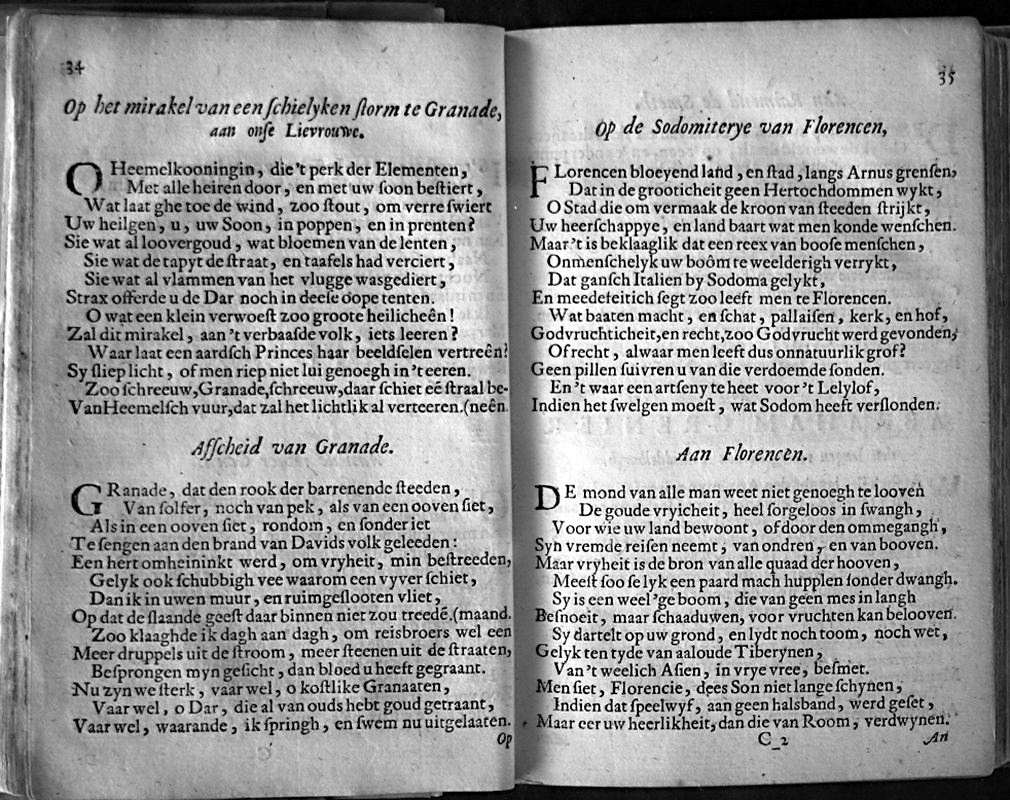 34
Op het mirakel van een ſchielyken ſtorm te Granade,
aan onſe Lievrouwe.
O Heemelkooningin, die 't perk der Elementen,
Met alle heiren door, en met uw ſoon beſtiert,
Wat laat ghe toe de wind, zoo ſtout, om verre ſwiert
Uw heilgen, u, uw Soon, in poppen, en in prenten?
Sie wat al loovergoud, wat bloemen van de lenten,
Sie wat de tapyt de ſtraat, en taafels had verciert,
Sie wat al vlammen van het vlugge wasgediert,
Strax offerde u de Dar noch in deeſe dope tenten.
O wat een klein verwoeſt zoo groote heilicheên!
Zal dit mirakel, aan 't verbaaſde volk, iets leeren?
Waar laat een aardſch Princes haar beeldſelen vertreên?
Sy ſliep licht, of men riep niet lui genoegh in 't eeren.
Zoo ſchreeuw, Granade, ſchreeuw, daar ſchiet eē ſtraal be-
Van Heemelſch vuur, dat zal het lichtlik al verteeren. (neên.
Afſcheid van Granade.
GRanade, dat den rook der barrenende ſteeden,
Van ſolfer, noch van pek, als van een ooven ſiet,
Als in een ooven ſiet, rondom, en ſonder iet
Te ſengen aan den brand van Davids volk geleeden:
Een hert omheininkt werd, om vryheit, min beſtreeden,
Gelyk ook ſchubbigh vee waarom een vyver ſchiet,
Dan ik in uwen muur, en ruimgeſlooten vliet,
Op dat de ſlaande geeſt daar binnen niet zou treedē. (maand.
Zoo klaaghde ik dagh aan dagh, om reisbroers wel een
Meer druppels uit de ſtroom, meer ſteenen uit de ſtraaten,
Beſprongen myn geſicht, dan bloed u heeft gegraant.
Nu zyn we ſterk, vaar wel, o koſtlike Granaaten,
Vaar wel, o Dar, die al van ouds hebt goud getraant,
Vaar wel, waarande, ik ſpringh, en ſwem nu uitgelaaten.
Op
35
Op de Sodomiterye van Florencen,
FLorencen bloeyend land, en ſtad, langs Arnus grenſen,
Dat in de grooticheit geen Hertochdommen wykt,
O Stad die om vermaak de kroon van ſteeden ſtrijkt,
Uw heerſchappye, en land baart wat men konde wenſchen.
Maar 't is beklaaglik dat een reex van booſe menſchen,
Onmenſchelyk uw boôm te weelderigh verrykt,
Dat ganſch Italien by Sodoma gelykt,
En meedefeitich ſegt zoo leeft men te Florencen.
Wat baaten macht, en ſchat, pallaiſen, kerk, en hof,
Godvruchticheit, en recht, zoo Godvrucht werd gevonden,
Of recht, alwaar men leeft dus onnatuurlik grof?
Geen pillen ſuivren u van die verdoemde ſonden.
En 't waar een artſeny te heet voor 't Lelylof,
Indien het ſwelgen moeſt, wat Sodom heeft verſlonden.
Aan Florencen.
DE mond van alle man weet niet genoegh te looven
De goude vryicheit, heel ſorgeloos in ſwangh,
Voor wie uw land bewoont, of door den ommegangh,
Syn vremde reiſen neemt, van ondren, en van booven.
Maar vryheit is de bron van alle quaad der hooven,
Meeſt ſoo ſe lyk een paard mach hupplen ſonder dwangh.
Sy is een weel'ge boom, die van geen mes in langh
Beſnoeit, maar ſchaaduwen, voor vruchten kan belooven.
Sy dartelt op uw grond, en lydt noch toom, noch wet,
Gelyk ten tyde van aaloude Tiberynen,
Van 't weelich Aſien, in vrye vree, beſmet.
Men ſiet, Florencie, dees Son niet lange ſchynen,
Indien dat ſpeelwyf, aan geen halsband, werd geſet,
Maar eer uw heerlikheit, dan die van Room, verdwynen.
C 2
An